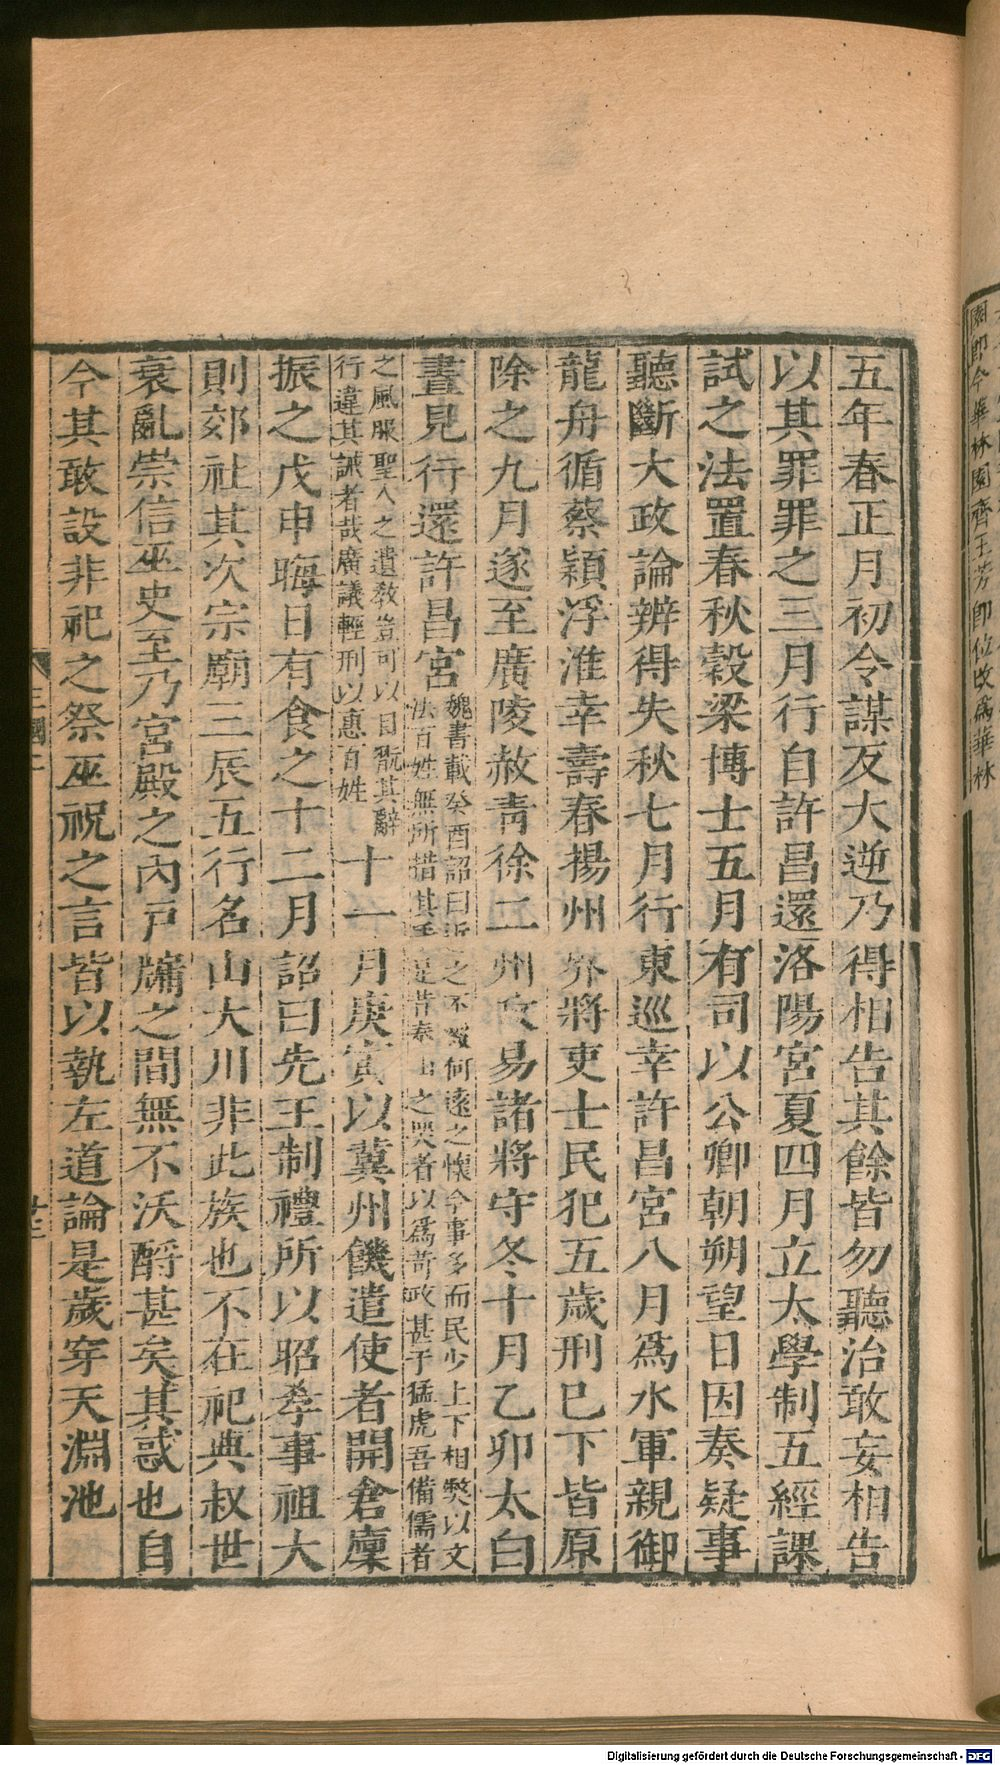 園即今華林園齊王芳即位改爲華林
五年春正月初令謀反大逆乃得相告其餘皆勿聽治敢妄相告
以其罪罪之三月行自許昌還洛陽宮夏四月立太學制五經課
試之法置春秋穀梁博士五月有司以公卿朝朔望日因奏疑事
聽斷大政論辨得失秋七月行東巡幸許昌宮八月爲水軍親御
龍舟循蔡潁浮淮幸壽春揚州界將吏士民犯五歲刑已下皆原
除之九月遂至廣陵赦青徐二州改易諸將守冬十月乙卯太白
晝見行還許昌宮
魏書載癸酉詔曰近之不 何遠之懷今事多而民少上下相獘以文
法百姓無所措其手足昔泰山之哭者以爲苛政甚于猛虎吾備儒者
之風服聖人之遺敎豈可以目翫其辭
行違其誡者哉廣議輕刑以惠百姓
十一月庚寅以冀州饑遣使者開倉廩
振之戊申晦日有食之十二月詔曰先王制禮所以昭孝事祖大
則郊社其次宗廟三辰五行名山大川非此族也不在祀典叔世
衰亂崇信巫史至乃宮殿之內戶牖之間無不沃酹甚矣其惑也自
今其敢設非祀之祭巫祝之言皆以執左道論是歲穿天淵池
三國二
廿三
Digitalisierung gefördert durch die Deutsche Forschungsgemeinschaft - DFG